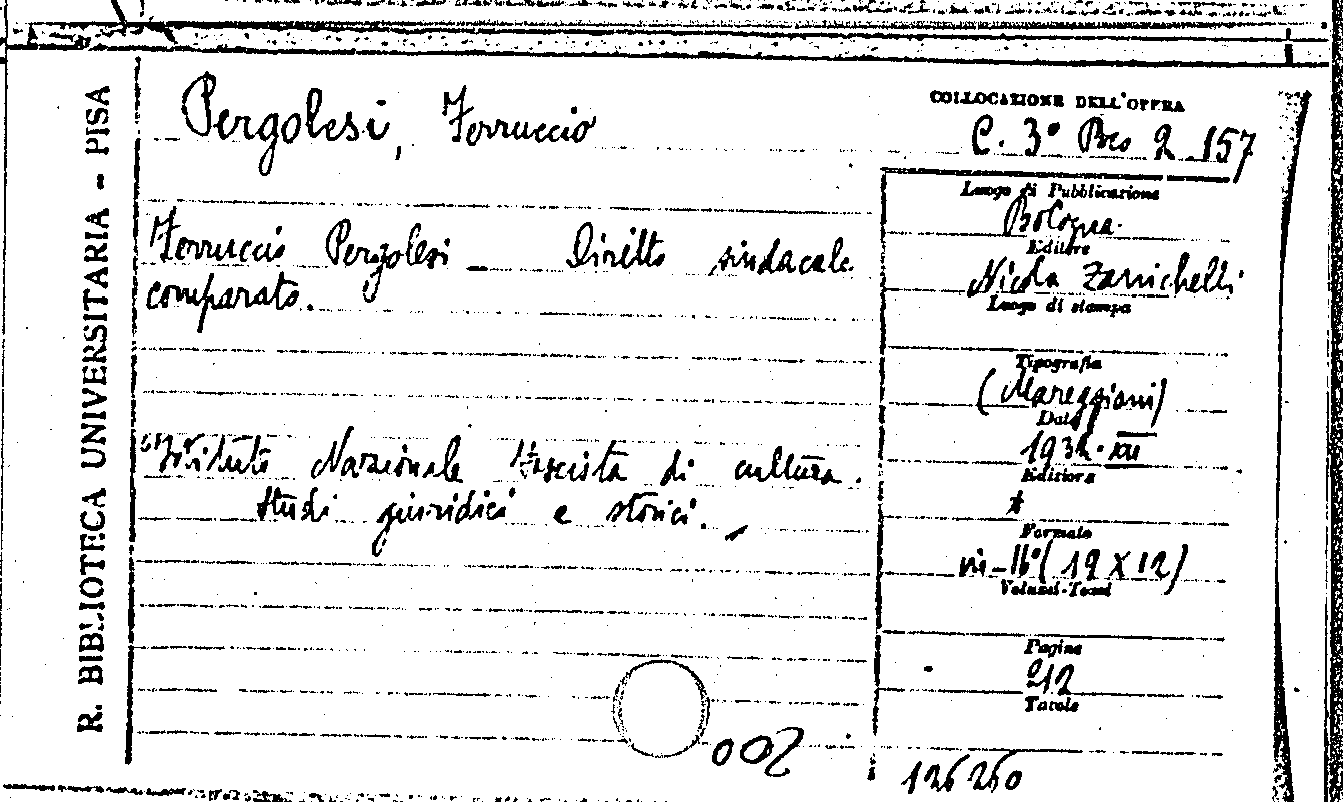 R. BIBLIOTECA UNIVERSITARIA - PISA
Pergolesi, Ferruccio
COLLOCAZIONE DELL'OPERA
C. 3° Bes 2 157
Ferruccio Pergolesi - Diritto sindacale
comparato.
Istituto Nazionale Fascista di cultura.
Studi giuridici e storici.
Luogo di Pubblicazione
Bologna.
Editore
Nicola Zanichelli
Luogo di stampa
Tipografia
(Mareggiani)
Data
1934-XII
Edizione
Formato
in-16°(19 X 12)
Volumi-Tomi
Pagine
212
Tavole
002
126260